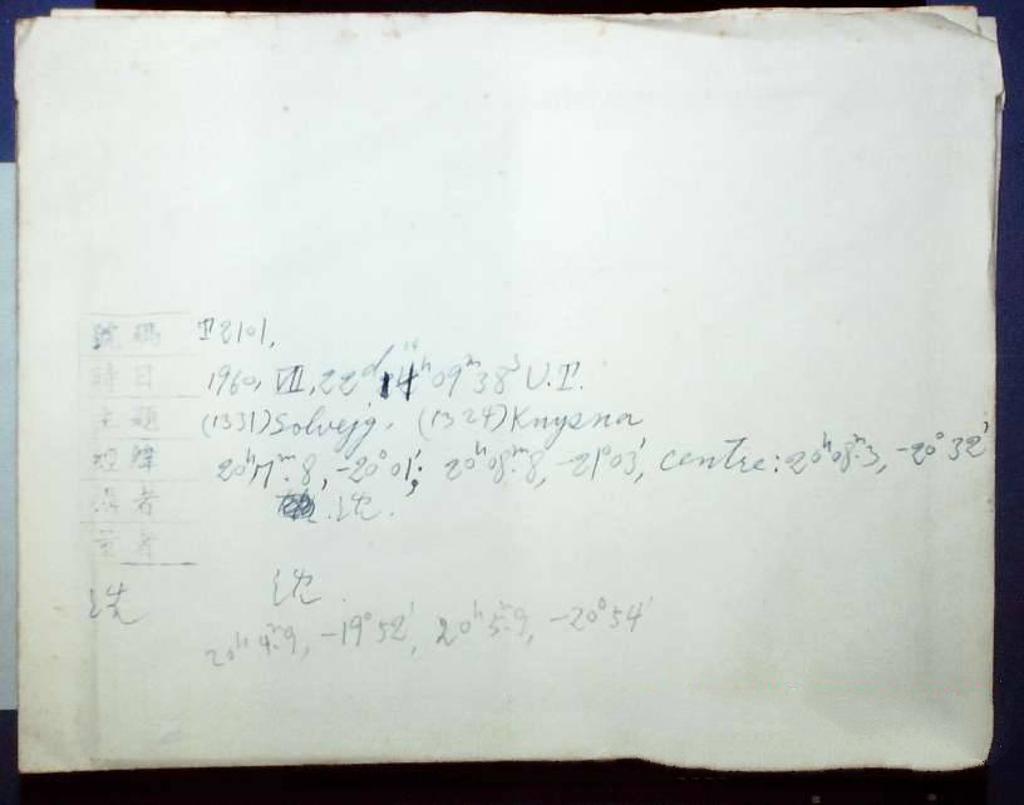 號碼 T2101,
時日 1960, VII, 22ᵈ 14ʰ 09ᵐ 38ˢ U.T.
主題 (1331) Solvejg. (1324) Knysna
經緯 20ʰ 7ᵐ.8, -20° 01'; 20ʰ 08ᵐ.8, -21° 03', centre: 20ʰ 08ᵐ.3, -20° 32'
者 沈.
者
洗 沈.
20ʰ 4ᵐ.9, -19° 52', 20ʰ 5ᵐ.9, -20° 54'